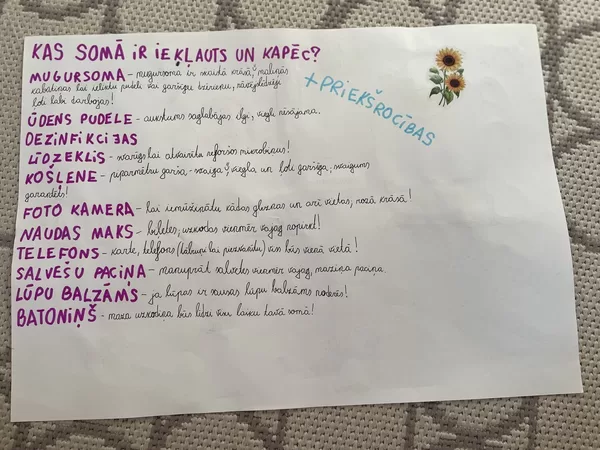 KAS SOMĀ IR IEKĻAUTS UN KAPĒC?
+PRIEKŠROCĪBAS
MUGURSOMA - mugursoma ir skaistā krāsā, maliņās
kabatiņas lai ieliktu pudeli vai garšīgu dzērienu,
ļoti labi darbojas!
ŪDENS PUDELE - aukstums saglabājas ilgi, viegli nēsājama.
DEZINFIKCIJAS
LĪDZEKLIS - svarīgs lai atkautu mikrobiņus!
KOŠĻENE - piparmētru garša, svaiga, viegla un ļoti garšīga, svaigums
garantēts!
FOTO KAMERA - lai iemūžinātu kādas gleznas un arī vietas, rozā krāsā!
NAUDAS MAKS - biļetes, uzkodas vienmēr vajag nopirkt!
TELEFONS - karte, telefons (tālruņi lai piezvanītu) viss būs vienā vietā!
SALVEŠU PACIŅA - manuprāt salvetes vienmēr vajag, maziņa paciņa.
LŪPU BALZĀMS - ja lūpas ir sausas lūpu balzāms noderēs!
BATONIŅŠ - maza uzkodiņa būs līdzi visu laiku tavā somā!